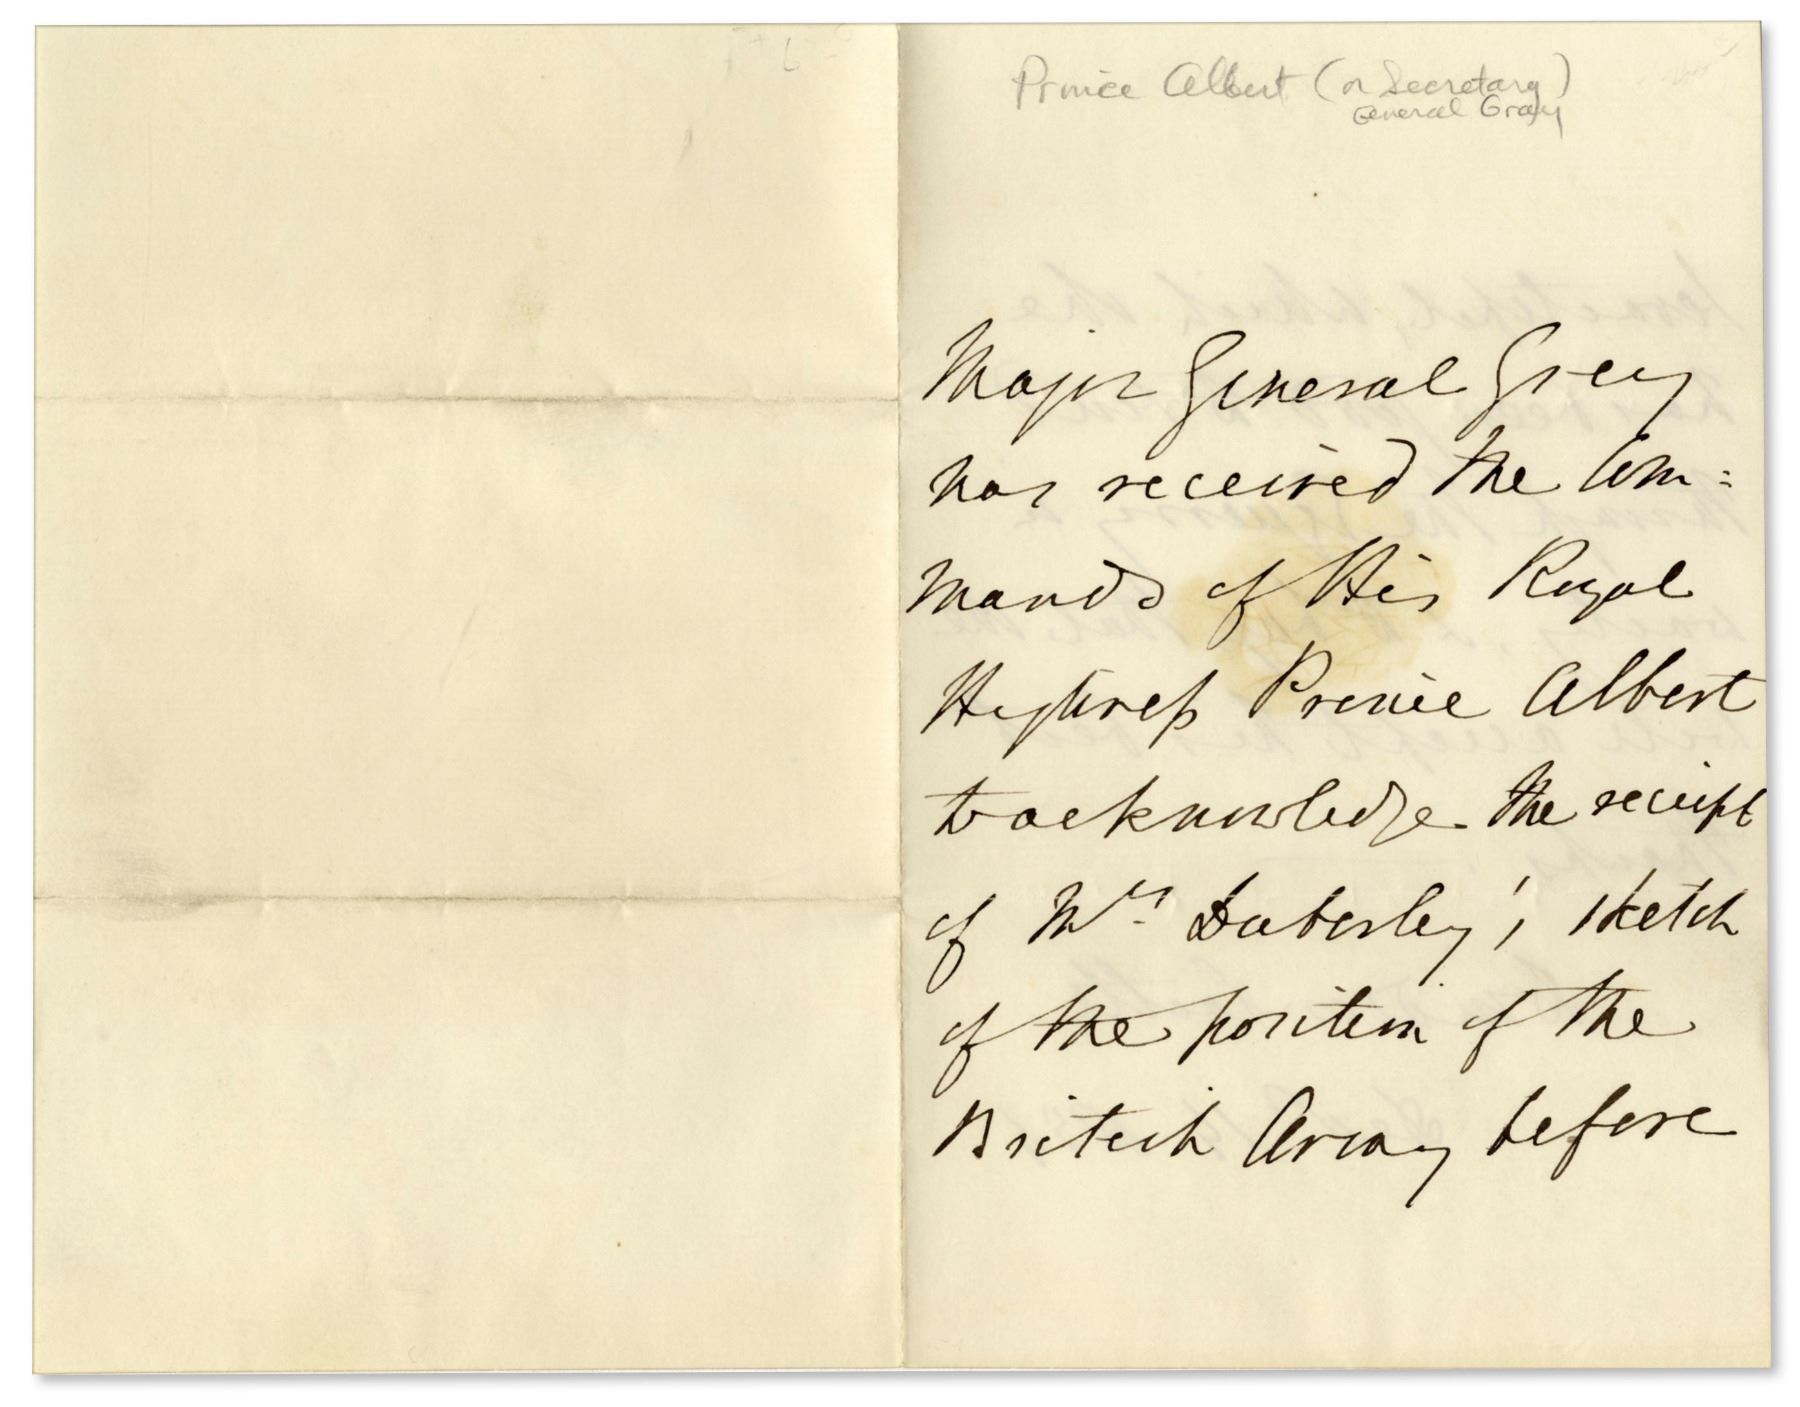 Prince Albert (or Secretary)
General Gray
Major General Grey
has received the Com=
mands of His Royal
Highness Prince Albert
to acknowledge the receipt
of Mrs. Duberley's sketch
of the position of the
British Army before